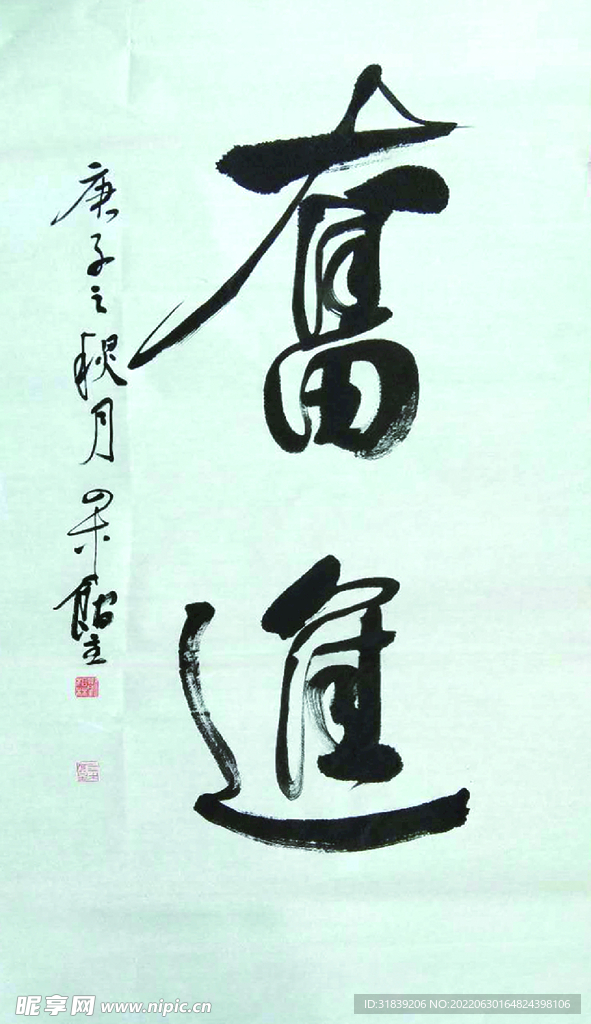 奮進
庚子之秋月
昵享网 www.nipic.cn
ID:31839206 NO:20220630164824398106